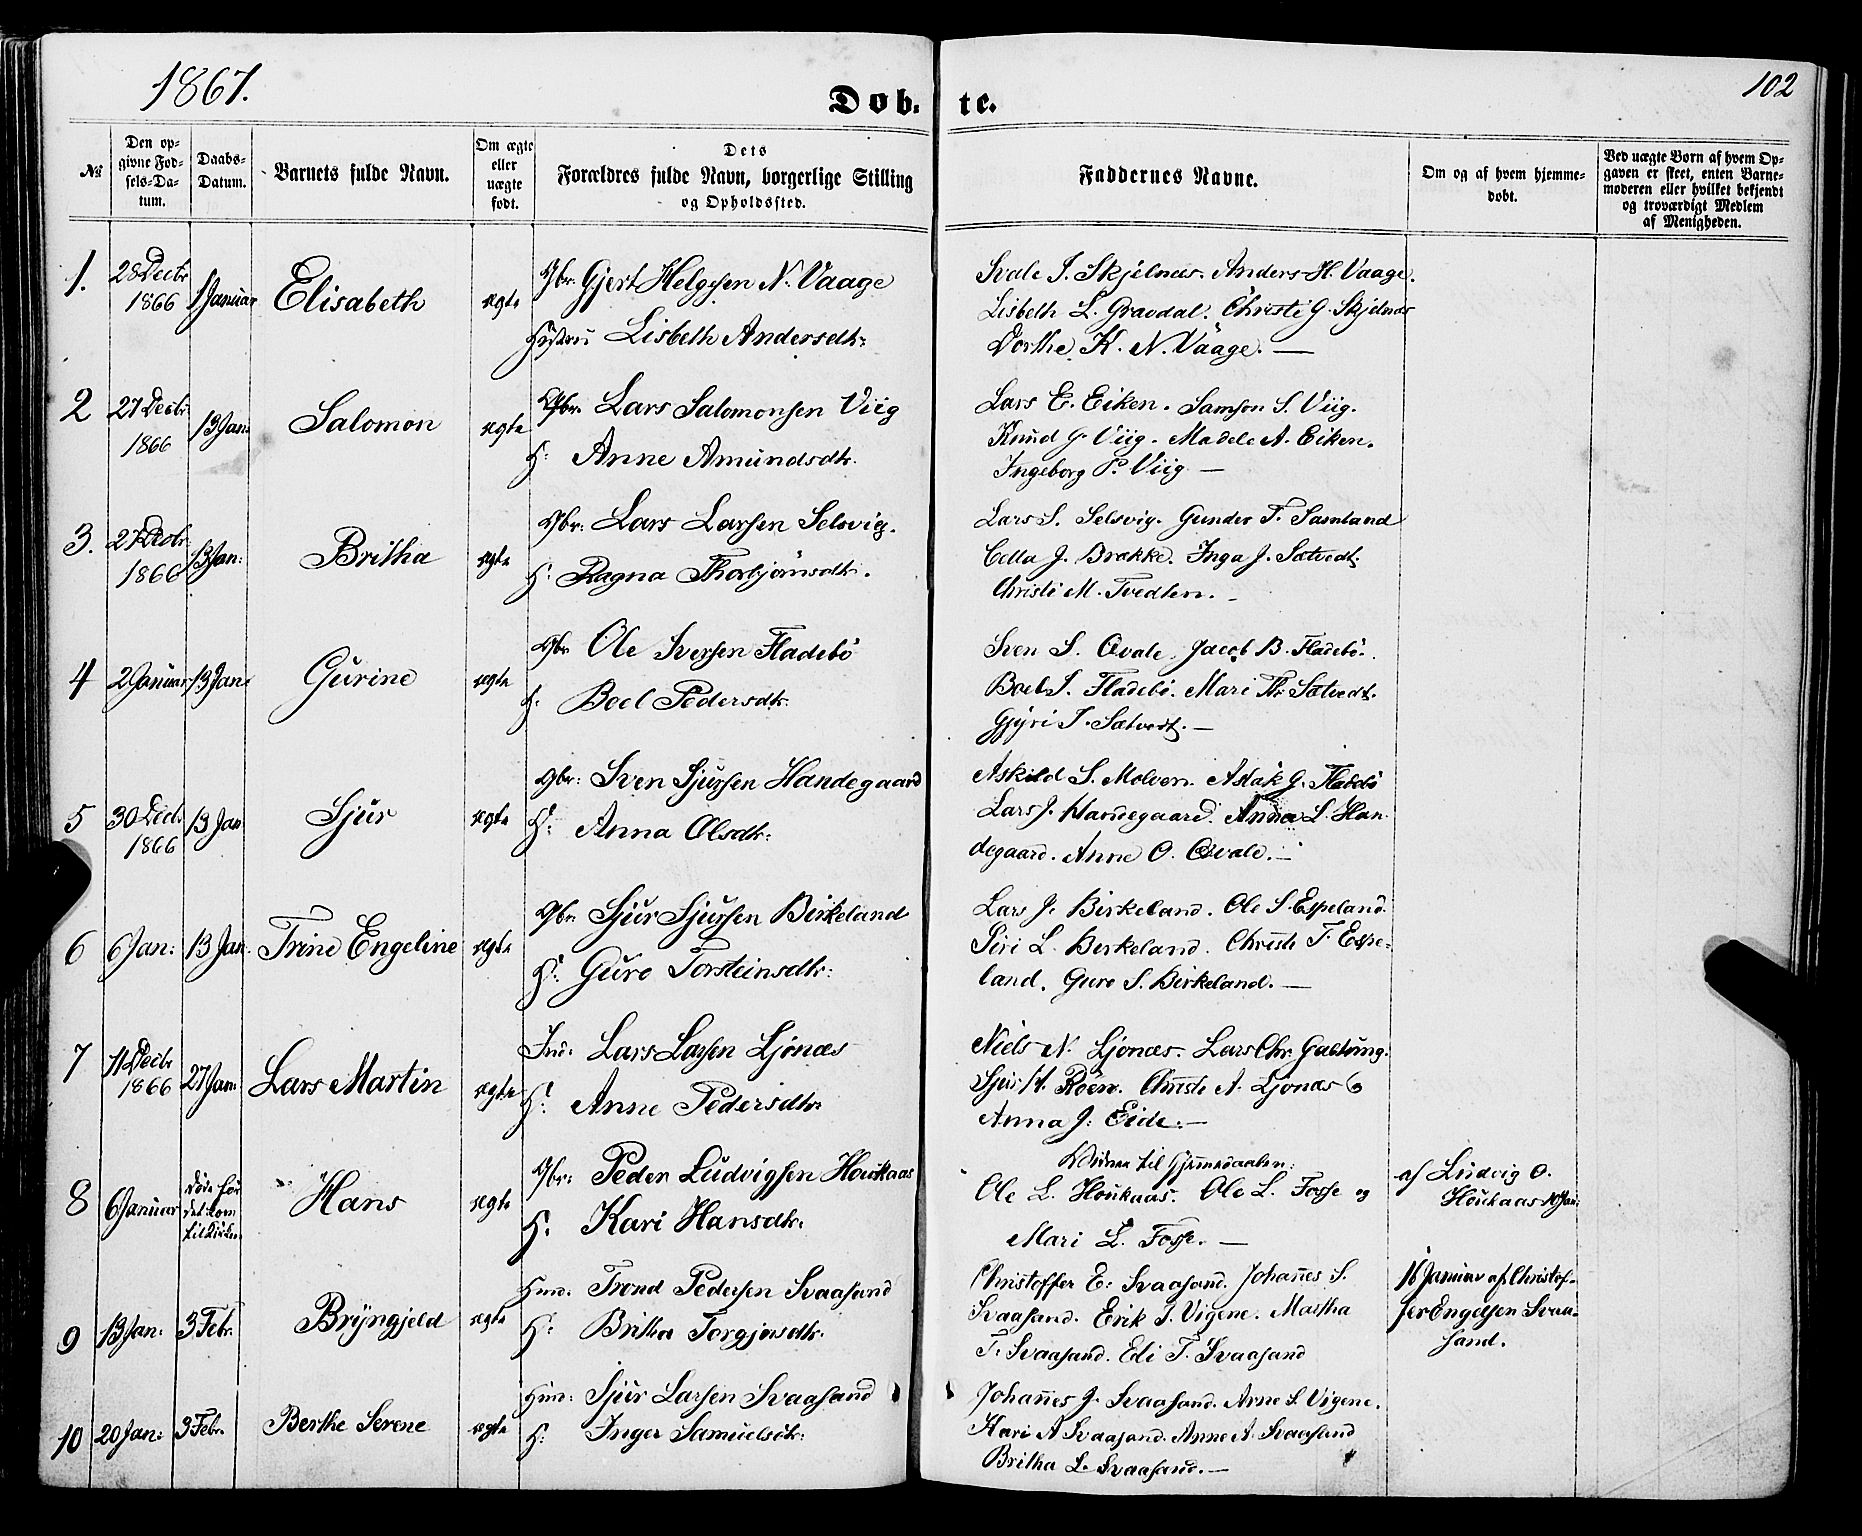 1867.
Døb- te.
102
No
Den op-
givne Fød-
sels-Da-
tum.
Daabs-
Datum.
Barnets fulde Navn.
Om ægte
eller
uægte
født.
Dets
Forældres fulde Navn, borgerlige Stilling
og Opholdssted.
Faddernes Navne.
Om og af hvem hjemme-
døbt.
Ved uægte Børn af hvem Op-
gaven er skeet, enten Barne-
moderen eller hvilket bekjendt
og troværdigt Medlem
af Menigheden.
1. 28 Decbr 1866 1 Januar Elisabeth ægte Gbr. Gjert Helgesen N. Vaage
Hustru Lisbeth Andersdtr:
Svale J. Skjelnæs. Anders H. Vaage.
Lisbeth L. Gravdal. Christi G. Skjelnæs
Dorthe K. N. Vaage. —
2 27 Decbr 1866 13 Jan: Salomon ægte Gbr. Lars Salomonsen Viig
H: Anne Amundsdtr.
Lars E. Eiken. Samson S. Viig.
Knud G. Viig. Madele A. Eiken.
Ingeborg P. Viig —
3. 27 Decbr 1866 13 Jan: Britha ægte Gbr: Lars Larsen Selsvig.
H: Ragna Thorbjørnsdtr.
Lars S. Selsvig. Gunder T. Samland
Cella J. Brække. Inga J. Sætvedt
Christi M. Tvedten. —
4 2 Januar 13 Jan: Gurine ægte Gbr Ole Iversen Fladebø
H: Boel Pedersdtr.
Sven S. Qvale. Jacob B. Fladebø.
Boel J. Fladebø. Mari Th. Sætvedt.
Gjyri T. Sætvedt. —
5 30 Decb. 1866 13 Jan Sjur ægte Gbr: Sven Sjursen Handegaard
H: Anna Olsdtr:
Askild S. Molven. Aslak G. Fladebø
Lars J. Handegaard. Anna L. Han-
degaard. Anne O. Qvale. —
6 6 Jan: 13 Jan. Trine Engeline ægte Gbr. Sjur Sjursen Birkeland
H: Guro Torsteinsdtr:
Lars J. Birkeland. Ole S. Espeland.
Siri L. Birkeland. Christi T. Espe-
land. Guro S. Birkeland. —
7 11 Decbr 1866 27 Jan: Lars Martin ægte Ind: Lars Larsen Ljønæs
H: Anne Pedersdtr:
Niels N. Ljonæs. Lars Chr. Galtung.
Sjur H. Røen. Christi A. Ljonæs
Anna J. Eide. —
8 6 Januar Døde før det kom til Kirken Hans ægte Gbr: Peder Ludvigsen Houkaas
H: Kari Hansdtr:
Vidner til Hjemmedaaben:
Ole L. Houkaas. Ole L. Fosse og
Mari L. Fosse. —
af Ludvig O.
Houkaas 10 Jan:
9 13 Jan: 3 Febr. Bryngjeld ægte Hmd: Trond Pedersen Svaasand
H: Britha Torgjersdtr.
Christoffer E. Svaasand. Johannes S.
Svaasand. Erik J. Vigene. Martha
T. Svaasand. Eli T. Svaasand
16 Januar af Christof-
fer Engelsen Svaa-
sand.
10 20 Jan: 3 Febr. Berthe Serene ægte Hmd: Sjur Larsen Svaasand
H: Inger Samuelsdtr:
Johannes J. Svaasand. Anne S. Vigene.
Kari A Svaasand. Anne A. Svaasand
Britha L. Svaasand. —